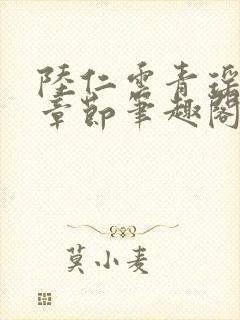 陸仁雲青瑤
章節筆趣閣
莫小麦